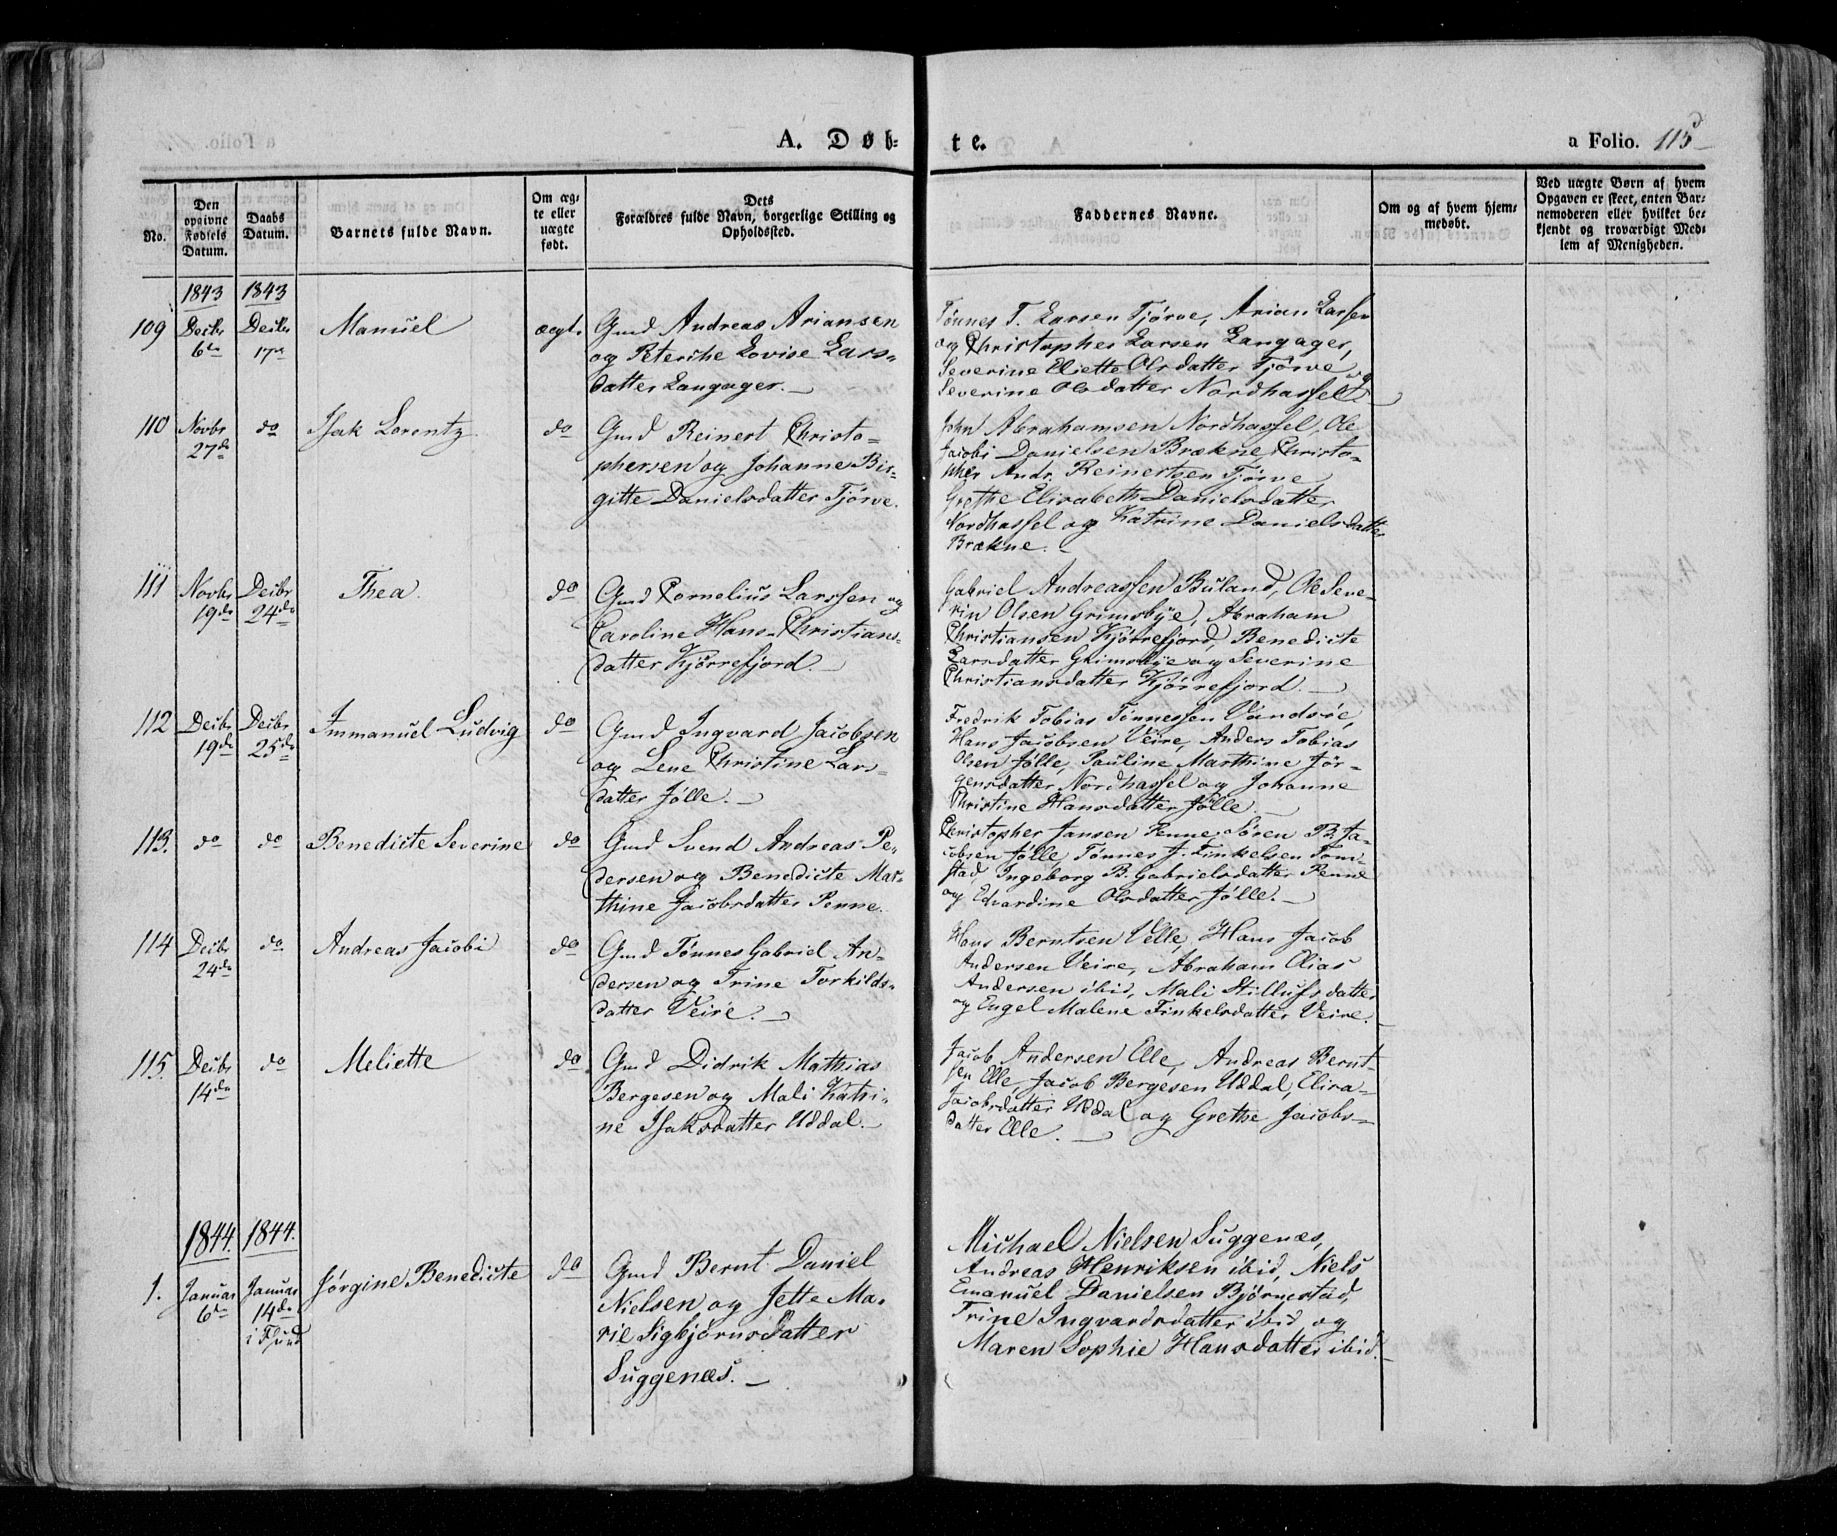 A. Døb- te.
a Folio. 115
No.
Den opgivne Fødsels Datum.
Daabs Datum.
Barnets fulde Navn.
Om ægte eller uægte født.
Dets Forældres fulde Navn, borgerlige Stilling og Opholdssted.
Faddernes Navne.
Om og af hvem hjemmedøbt.
Ved uægte Børn af hvem Opgaven er skeet, enten Barnemoderen eller hvilket bekjendt og troværdigt Medlem af Menigheden.
1843 1843
109 Decbr 6te Decbr 17de Manuel ægte
Gmd Andreas Ariansen
og Peterche Lovise Lars-
datter Langager.
Tønnes T. Larsen Tjørve, Arian Larsen
og Christopher Larsen Langager,
Severine Eliette Olsdatter Tjørve og
Severine Olsdatter Nordhassel
110 Novbr 27de do Isak Lorentz do
Gmd Reinert Christo-
phersen og Johanne Bir-
gitte Danielsdatter Tjørve.
John Abrahamsen Nordhassel, Ole
Jacobi Danielsen Brækne, Christo-
pher Andr. Reinertsen Tjørve
Grethe Elisabeth Danielsdatter
Nordhassel og Katrine Danielsdatter
Brækne.
111 Novbr 19de Decbr 24de Thea. do
Gmd Cornelius Larssen og
Caroline Hans-Christians-
datter Kjørrefjord.
Gabriel Andreassen Buland, Ole Seve-
rin Olsen Grimsbye, Abraham
Christiansen Kjørrefjord, Benedicte
Larsdatter Grimsbye og Severine
Christiansdatter Kjørrefjord.
112 Decbr 19de Decbr 25de Immanuel Ludvig do
Gmd Ingvard Jacobsen
og Lene Christine Lars-
datter Jølle.
Fredrik Tobias Tønnessen Vandsøe,
Hans Jacobsen Veire, Anders Tobias
Olsen Jølle, Pauline Marthine Jør-
gensdatter Nordhassel og Johanne
Christine Hansdatter Jølle
113. do do Benedicte Severine do
Gmd Svend Andreas Pe-
dersen og Benedicte Mar-
thine Jacobsdatter Penne.
Christopher Jansen Penne, Søren B. Ja-
cobsen Jølle, Tønnes J. Finkelsen Tom-
stad, Ingeborg B. Gabrielsdatter Penne
og Edvardine Olsdatter Jølle.
114 Decbr 24de do Andreas Jacobi do
Gmd Tønnes Gabriel An-
dersen og Trine Torkilds-
datter Veire.
Hans Berntsen Velle, Hans Jacob
Andersen Veire, Abraham Elias
Andersen ibid, Mali Stillufsdatter
og Engel Malene Finkelsdatter Veire.
115. Decbr 14de do Meliette do
Gmd Didrik Mathias
Bergesen og Mali Katri-
ne Isaksdatter Uddal.
Jacob Andersen Elle, Andreas Bernt-
sen Elle, Jacob Bergesen Uddal, Elisa-
Jacobsdatter Uddal og Grethe Jacobs-
datter Elle.
1844. 1844.
1. Januar 6te Januar 14de Jørgine Benedicte do
Gmd Bernt Daniel
Nielsen og Jette Ma-
rie Sigbjørnsdatter
Suggenæs.
Michael Nielsen Suggenæs,
Andreas Henriksen ibid, Niels
Emanuel Danielsen Bjørnestad,
Trine Ingvardsdatter ibid og
Maren Sophie Hansdatter ibid.